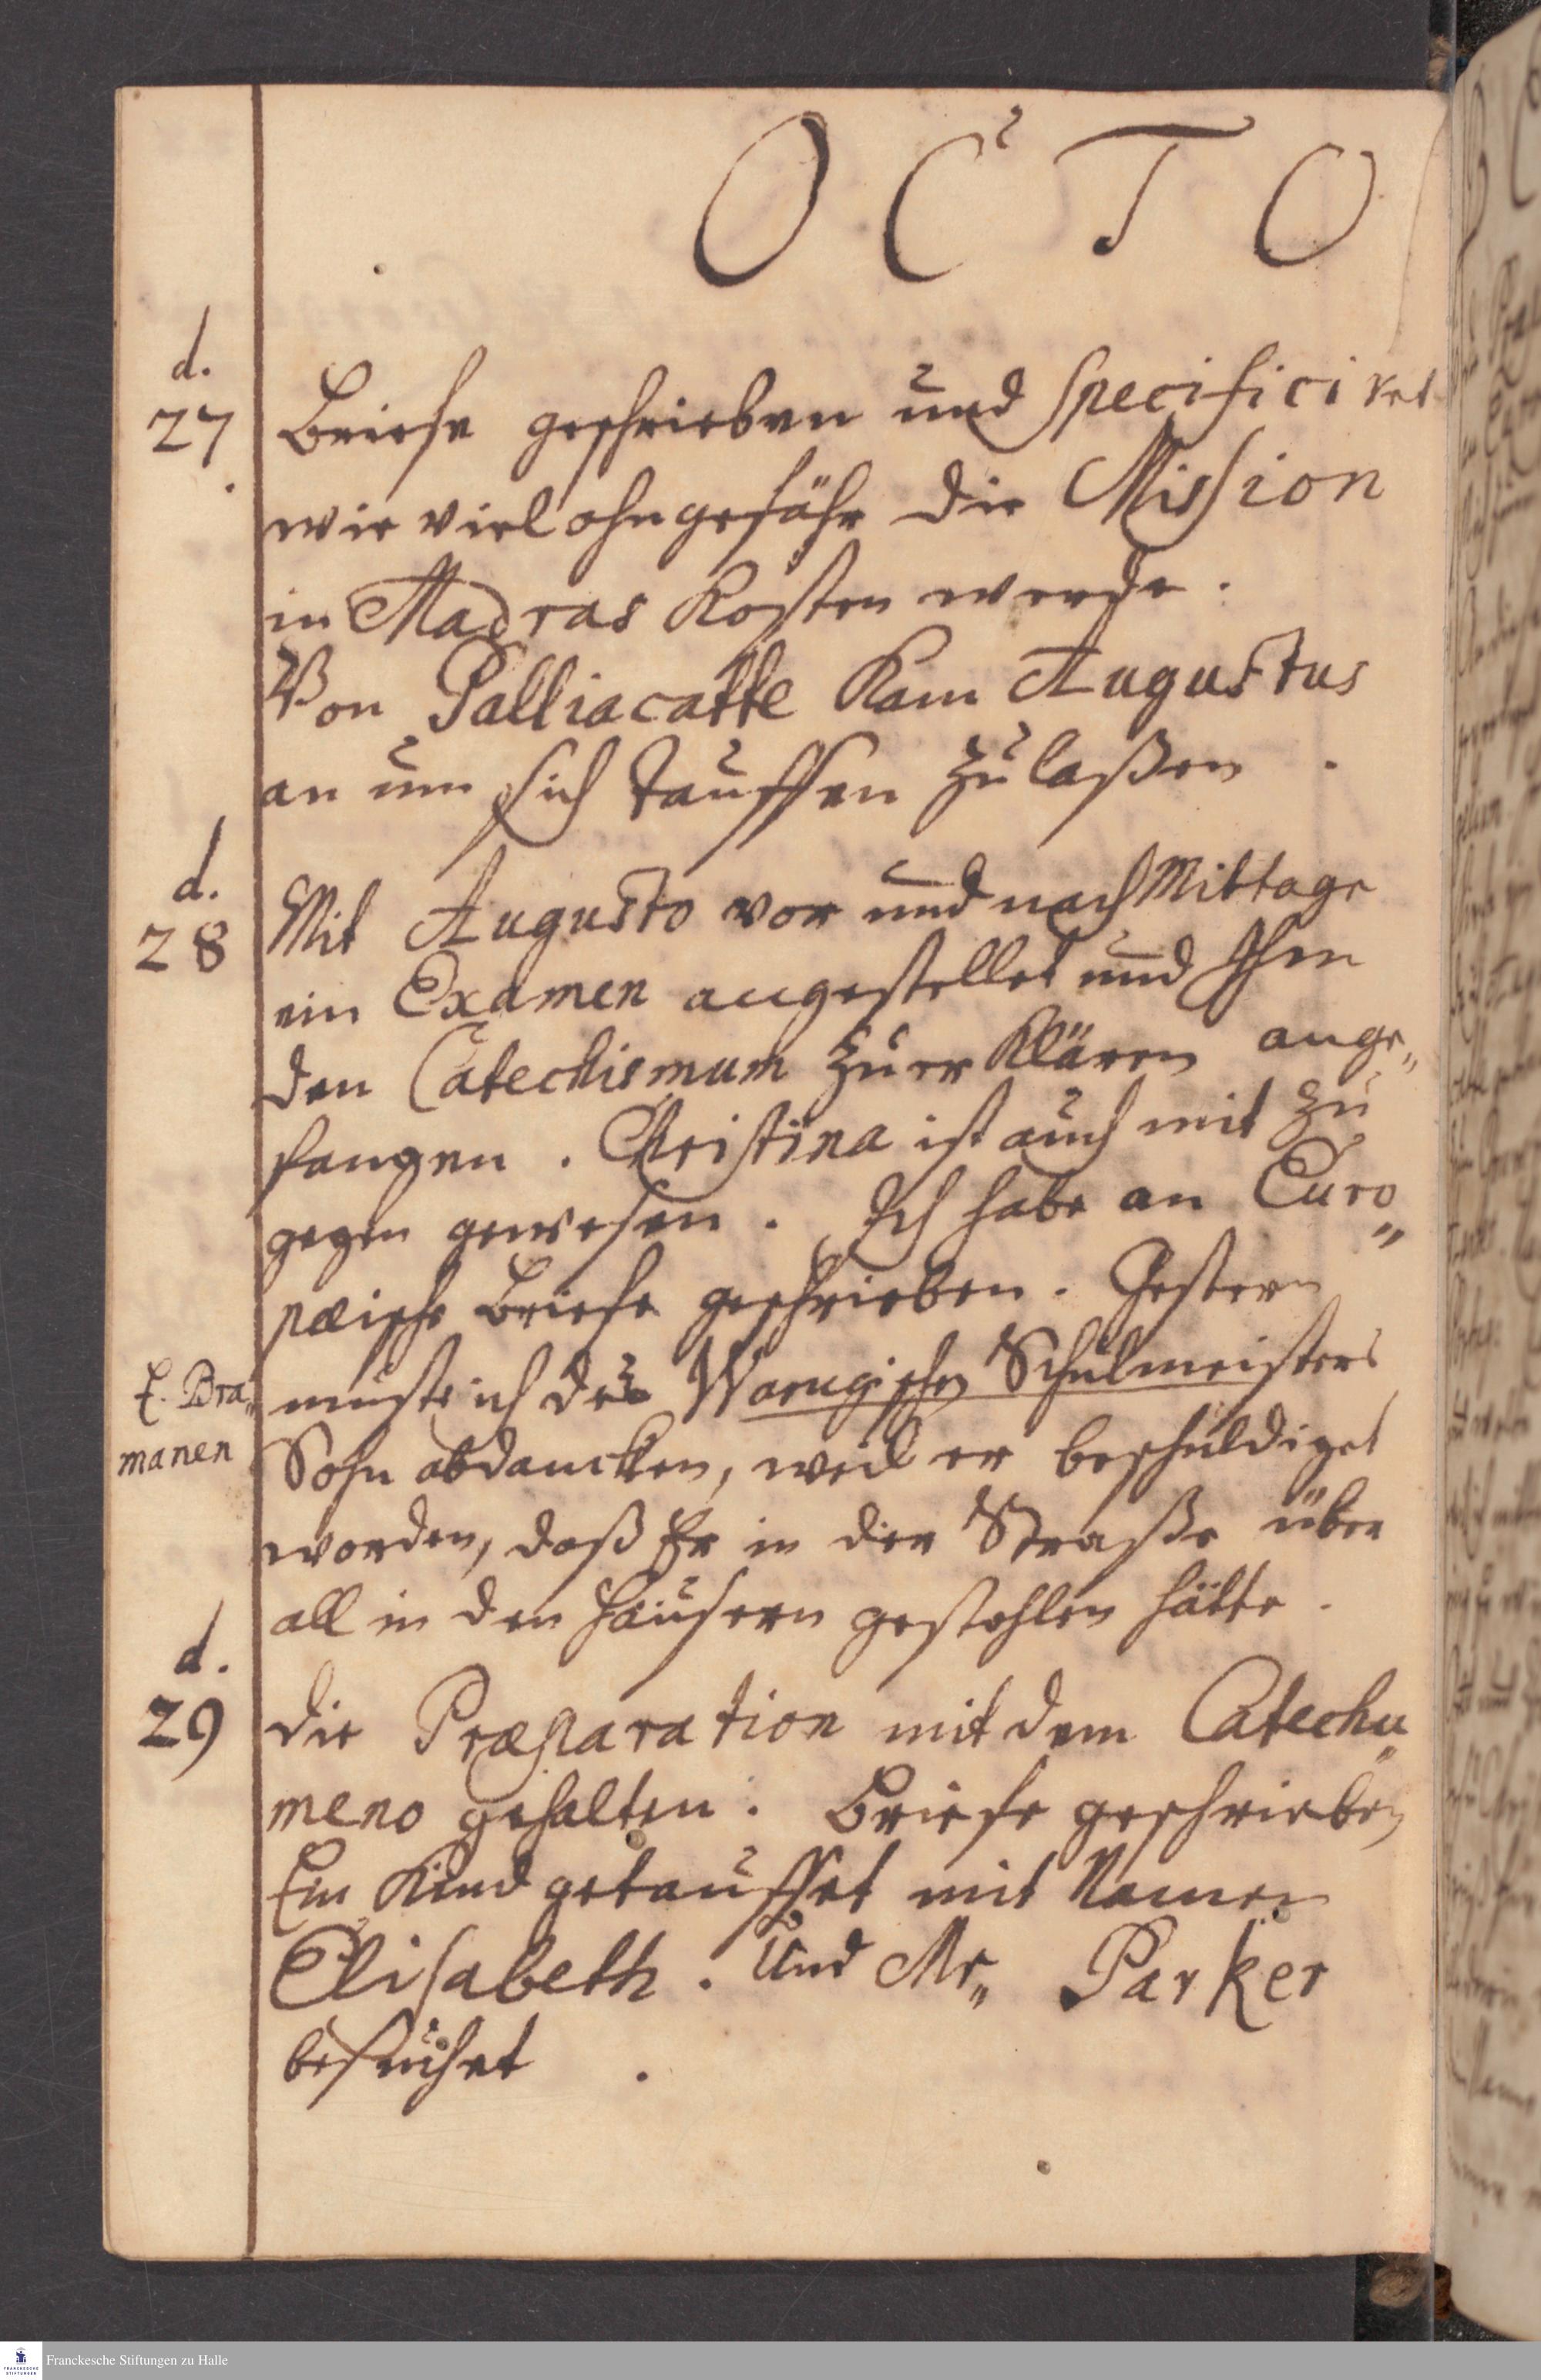 OCTO
d.
27
Briefe geschrieben und specificiret
wie viel ohngefähr die Mission
in Madras Kosten werde.
Von Palliacatte Kam Augustus
an um sich tauffen zu laßen.
d.
28
Mit Augusto vor und nach Mittage
ein Examen angestellet und Ihm
den Catechismum zu erklären ange„
fangen. Christina ist auch mit zu
gegen gewesen. Ich habe an Euro„
pæische Briefe geschrieben. Gestern
muste ich des Warugischen Schulmeisters
E. Bra„
manen
Sohn abdancken, weil er beschuldiget
worden, daß Er in der Straße über
all in den Häusern gestohlen hätte.
d.
29
die Præparation mit dem Catechu„
meno gehalten. Briefe geschrieben
Ein Kind getauffet mit Namen
Elisabeth. Und Mr„ Parker
besuchet.
Franckesche Stiftungen zu Halle
FRANCKESCHE
STIFTUNGEN